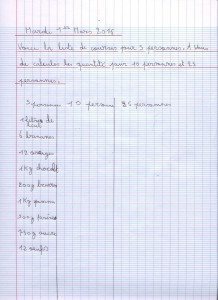 Mardi 1er Mars 2016
Voici la liste de courses pour 5 personnes. A vous
de calculer les quantité pour 10 personnes et 25
personnes.
5 personnes 10 personnes 25 personnes
1 litre de lait
6 bananes
12 oranges
1 kg chocolat
200g beurre
1 Kg pommes
200g farine
750g sucre
12 oeufs